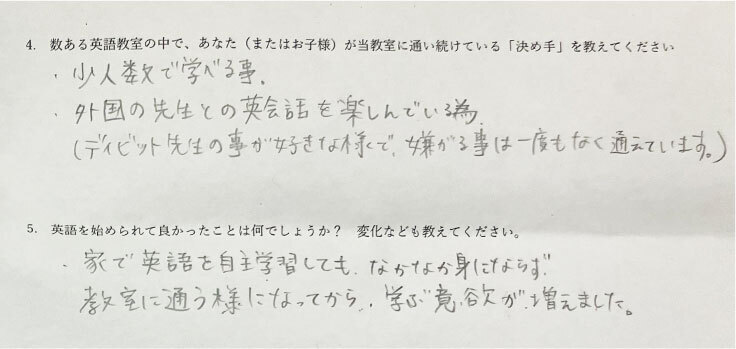 4. 数ある英語教室の中で、あなた（またはお子様）が当教室に通い続けている「決め手」を教えてください
・少人数で学べる事.
・外国の先生との英会話を楽しんでいる為.
(デイビット先生の事が好きな様で、嫌がる事は一度もなく通えています。)
5. 英語を始められて良かったことは何でしょうか？ 変化なども教えてください。
・家で英語を自主学習しても、なかなか身にならず
教室に通う様になってから、学ぶ意欲が増えました。